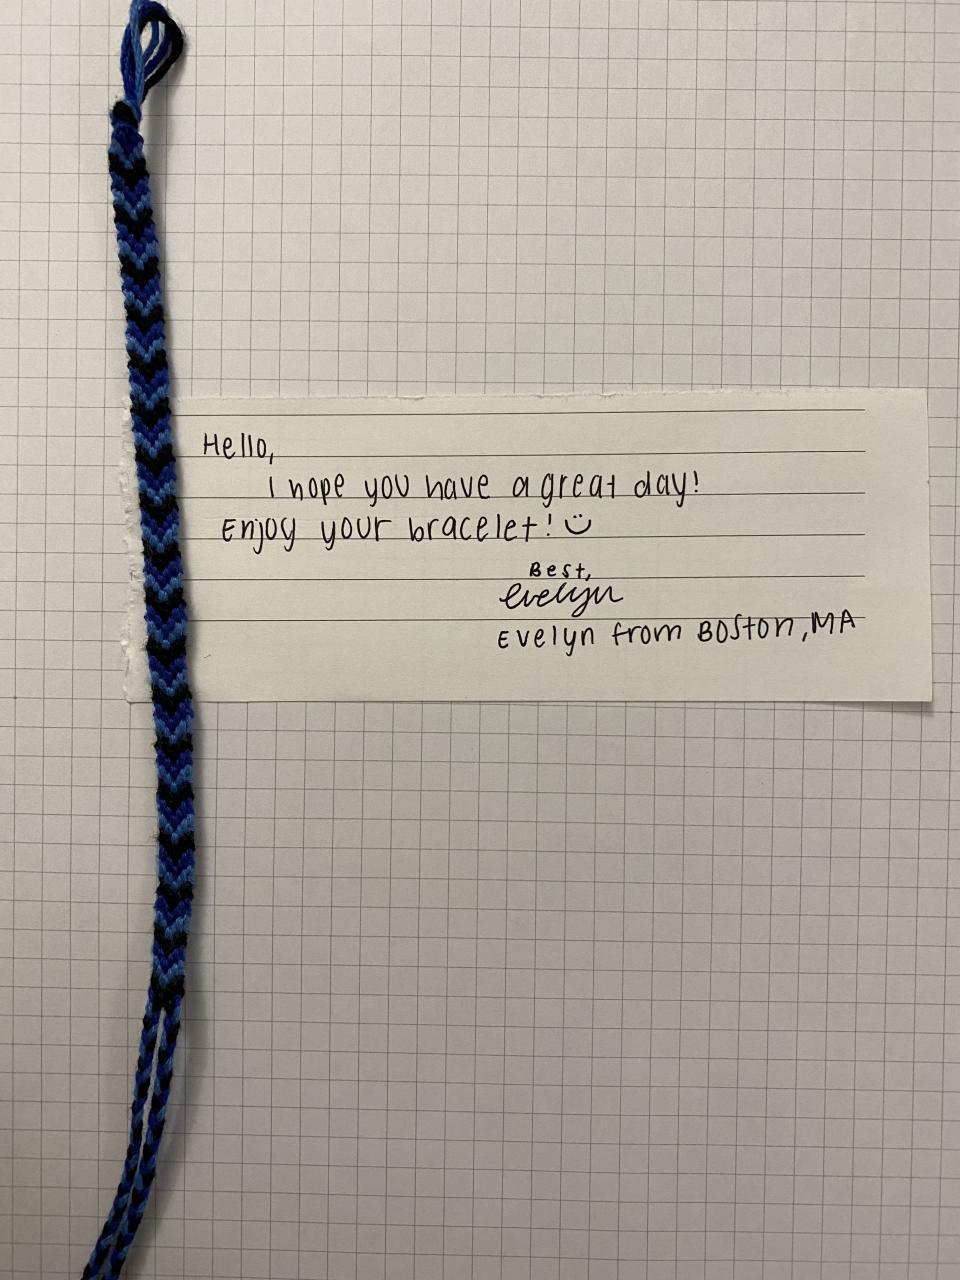 Hello,
I hope you have a great day!
Enjoy your bracelet! :)
Best,
Evelyn
Evelyn from Boston, MA